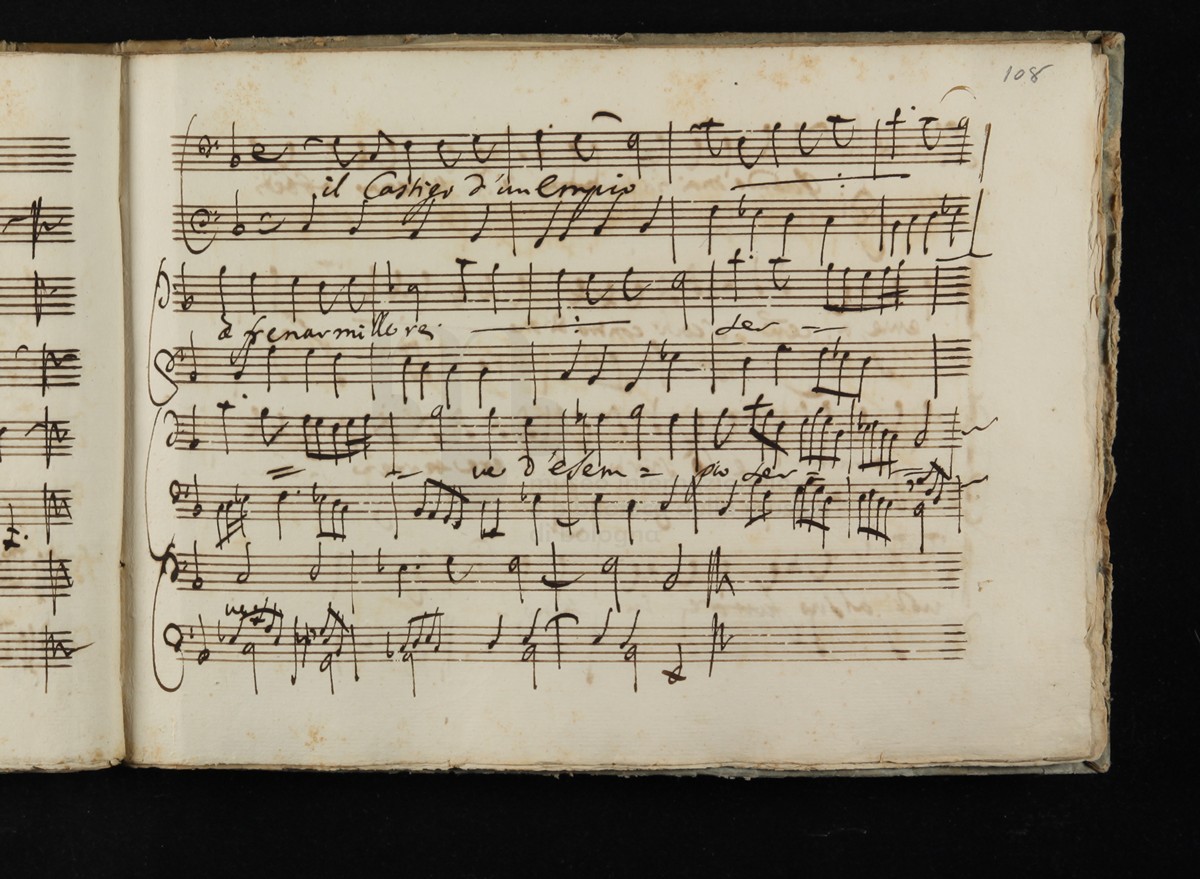 108
il Castigo d'un Empio
à frenar mill e re. Ser
ve d'esem = pio Ser =